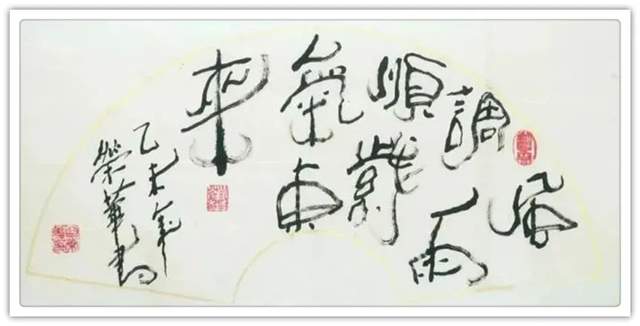 風
調雨
順紫
氣東
來
乙未年
榮華書